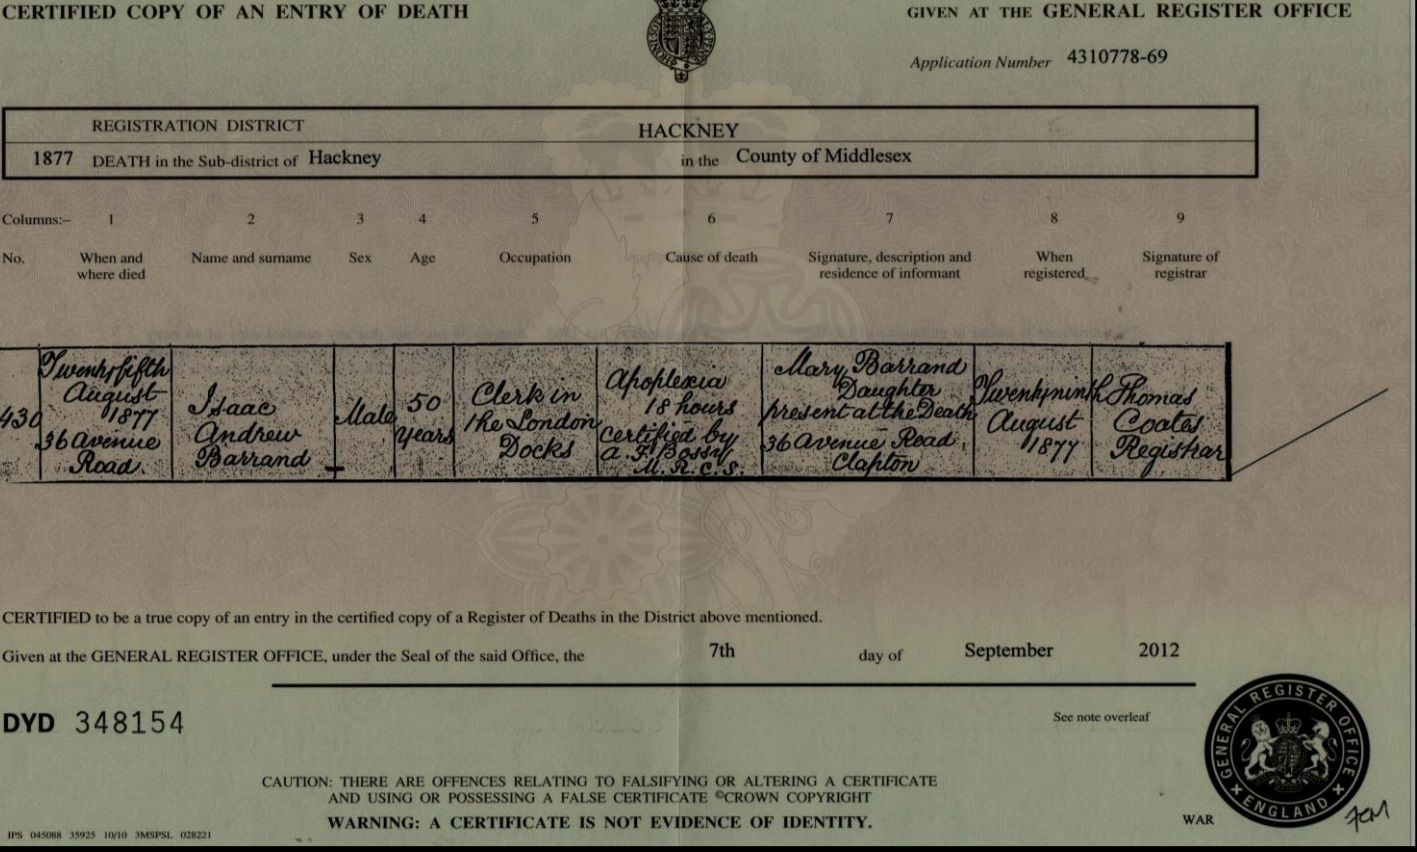 CERTIFIED COPY OF AN ENTRY OF DEATH
GIVEN AT THE GENERAL REGISTER OFFICE
Application Number 4310778-69
REGISTRATION DISTRICT HACKNEY
1877 DEATH in the Sub-district of Hackney in the County of Middlesex
Columns:– 1 2 3 4 5 6 7 8 9
No. When and where died Name and surname Sex Age Occupation Cause of death Signature, description and residence of informant When registered Signature of registrar
430
Twentyfifth
August
1877
36 Avenue
Road
Isaac
Andrew
Barrand
Male
50
years
Clerk in
the London
Docks
Apoplexia
18 hours
certified by
A. F. Bossy
M.R.C.S.
Mary Barrand
Daughter
present at the Death
36 Avenue Road
Clapton
Twentyninth
August
1877
Thomas
Coates
Registrar
CERTIFIED to be a true copy of an entry in the certified copy of a Register of Deaths in the District above mentioned.
Given at the GENERAL REGISTER OFFICE, under the Seal of the said Office, the 7th day of September 2012
DYD 348154
See note overleaf
CAUTION: THERE ARE OFFENCES RELATING TO FALSIFYING OR ALTERING A CERTIFICATE
AND USING OR POSSESSING A FALSE CERTIFICATE ©CROWN COPYRIGHT
WARNING: A CERTIFICATE IS NOT EVIDENCE OF IDENTITY.
GENERAL REGISTER OFFICE
ENGLAND
WAR
IPS 045088 35925 10/10 3MSPSL 028221